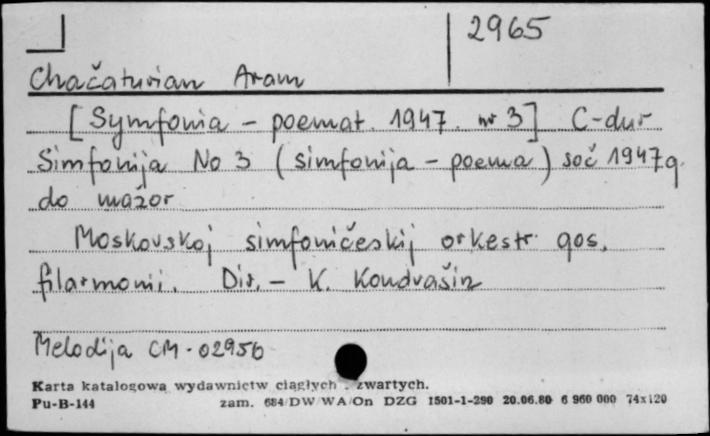 2965
Chačaturian Aram
[Symfonia - poemat. 1947. nr 3] C-dur
Simfonija No 3 (simfonija - poema) soč 1947g.
do mažor
Moskovskoj simfoničeskij orkestr gos.
filarmonii. Dir. - K. Kondrašin
Melodija CM - 02956
Karta katalogowa wydawnictw ciągłych . zwartych.
Pu-B-144 zam. 684/DW/WA/On DZG 1501-1-290 20.06.80 6 960 000 74x120